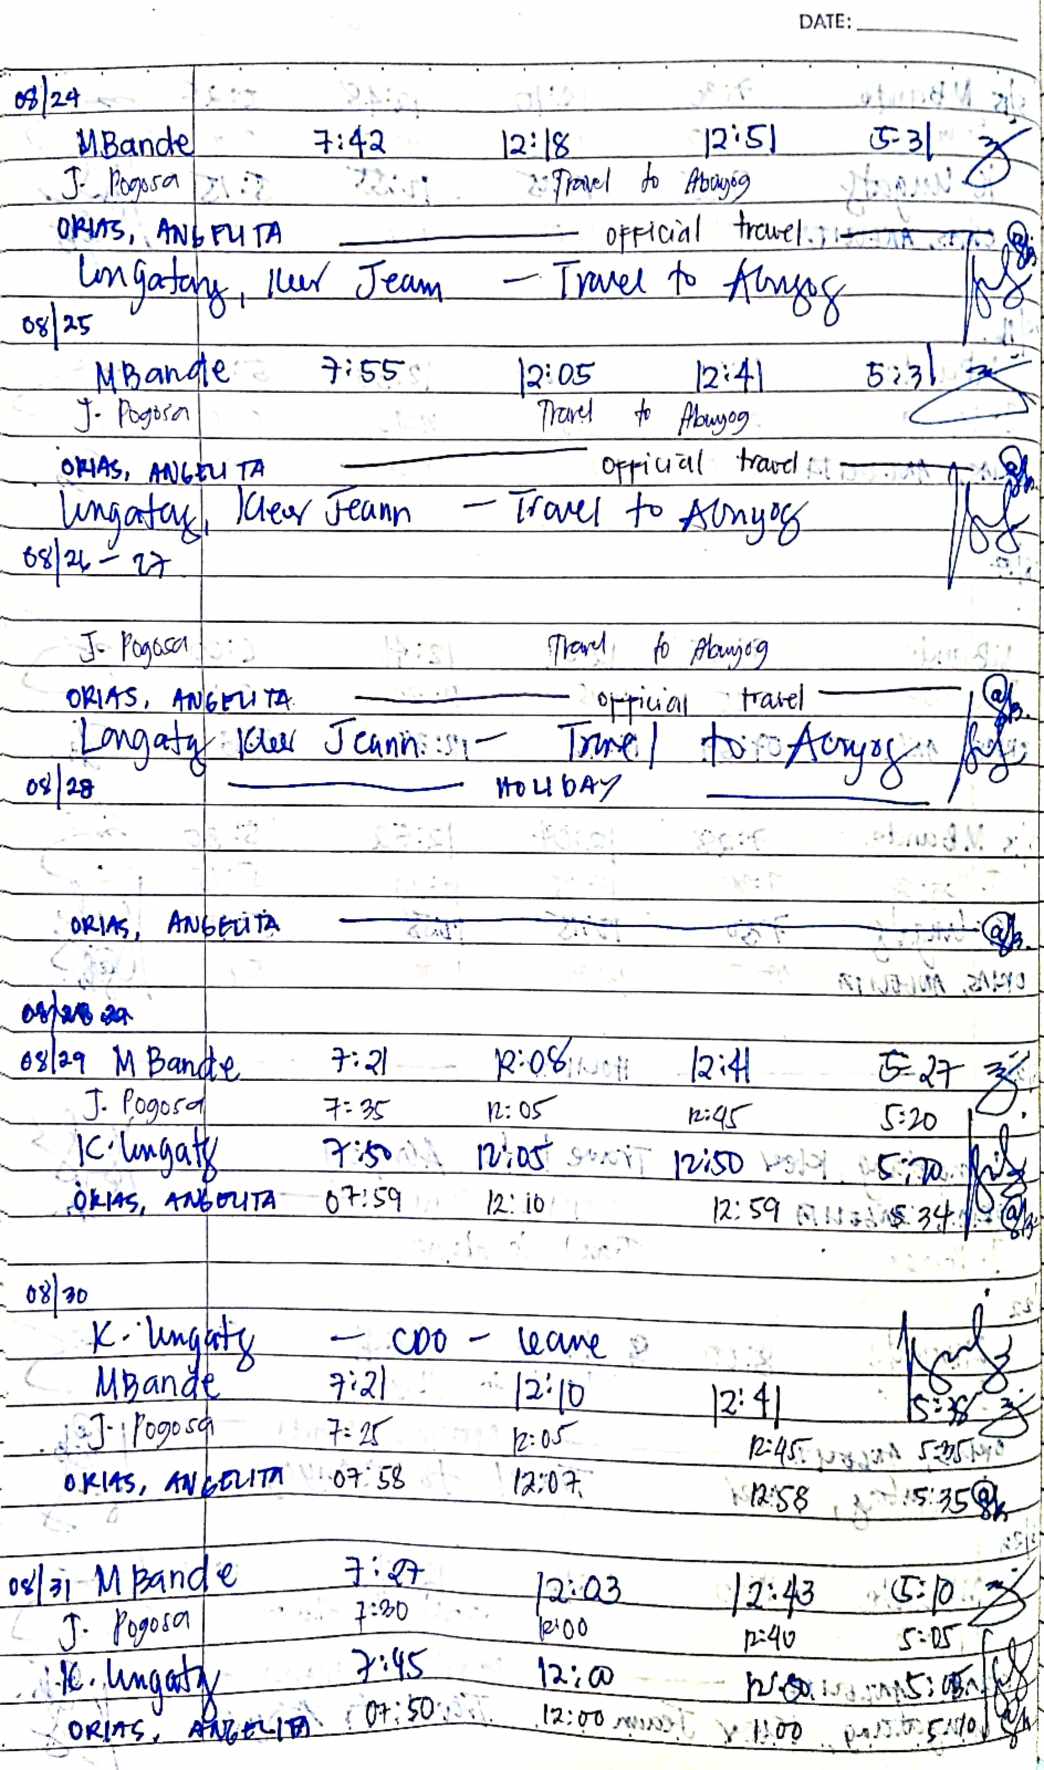 DATE:
08/24
M.Bande 7:42 12:18 12:51 5:31
J. Pogosa Travel to Abuyog
ORIAS, ANGELITA official travel
Travel to
08/25
M Bande 7:55 12:05 12:41 5:31
J. Pogosa Travel to Abuyog
ORIAS, ANGELITA official travel
Jeann - Travel to
08/26 - 27
J. Pogosa Travel to Abuyog
ORIAS, ANGELITA official travel
Jeann - Travel to
08/28 HOLIDAY
ORIAS, ANGELITA
08/29 M Bande 7:21 12:08 12:41 5:27
J. Pogosa 7:35 12:05 12:45 5:20
K. Lungaty 7:50 12:05 12:50 5:20
ORIAS, ANGELITA 07:59 12:10 12:59 5:34
08/30
K. Lungaty - CDO - leave
M Bande 7:21 12:10 12:41 5:38
J. Pogosa 7:25 12:05 12:45 5:35
ORIAS, ANGELITA 07:58 12:07 12:58 5:35
08/31 M Bande 7:27 12:03 12:43 5:10
J. Pogosa 7:30 12:00 12:40 5:05
K. Lungaty 7:45 12:00 5:05
ORIAS, ANGELITA 07:50 12:00 1:00 5:10